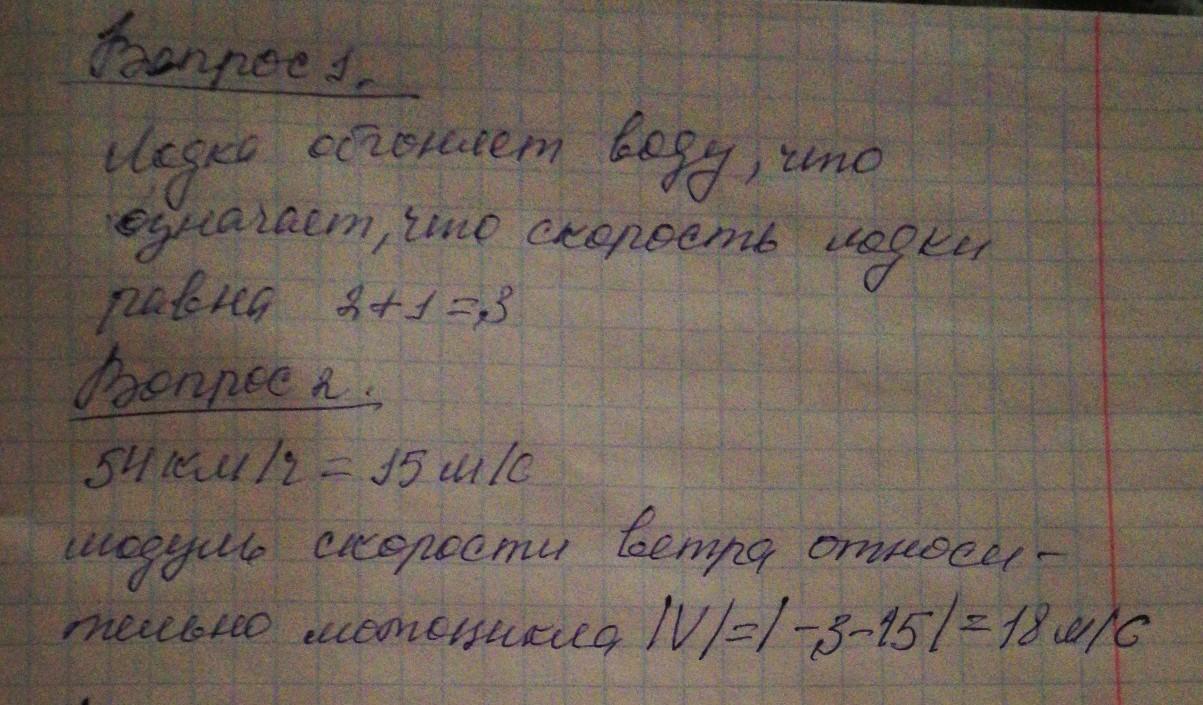 Вопрос 1.
Лодка обгоняет воду, что
означает, что скорость лодки
равна 2+1=3
Вопрос 2.
54 км/ч = 15 м/с
модуль скорости ветра относи-
тельно мотоцикла |V|=|-3-15|=18 м/с